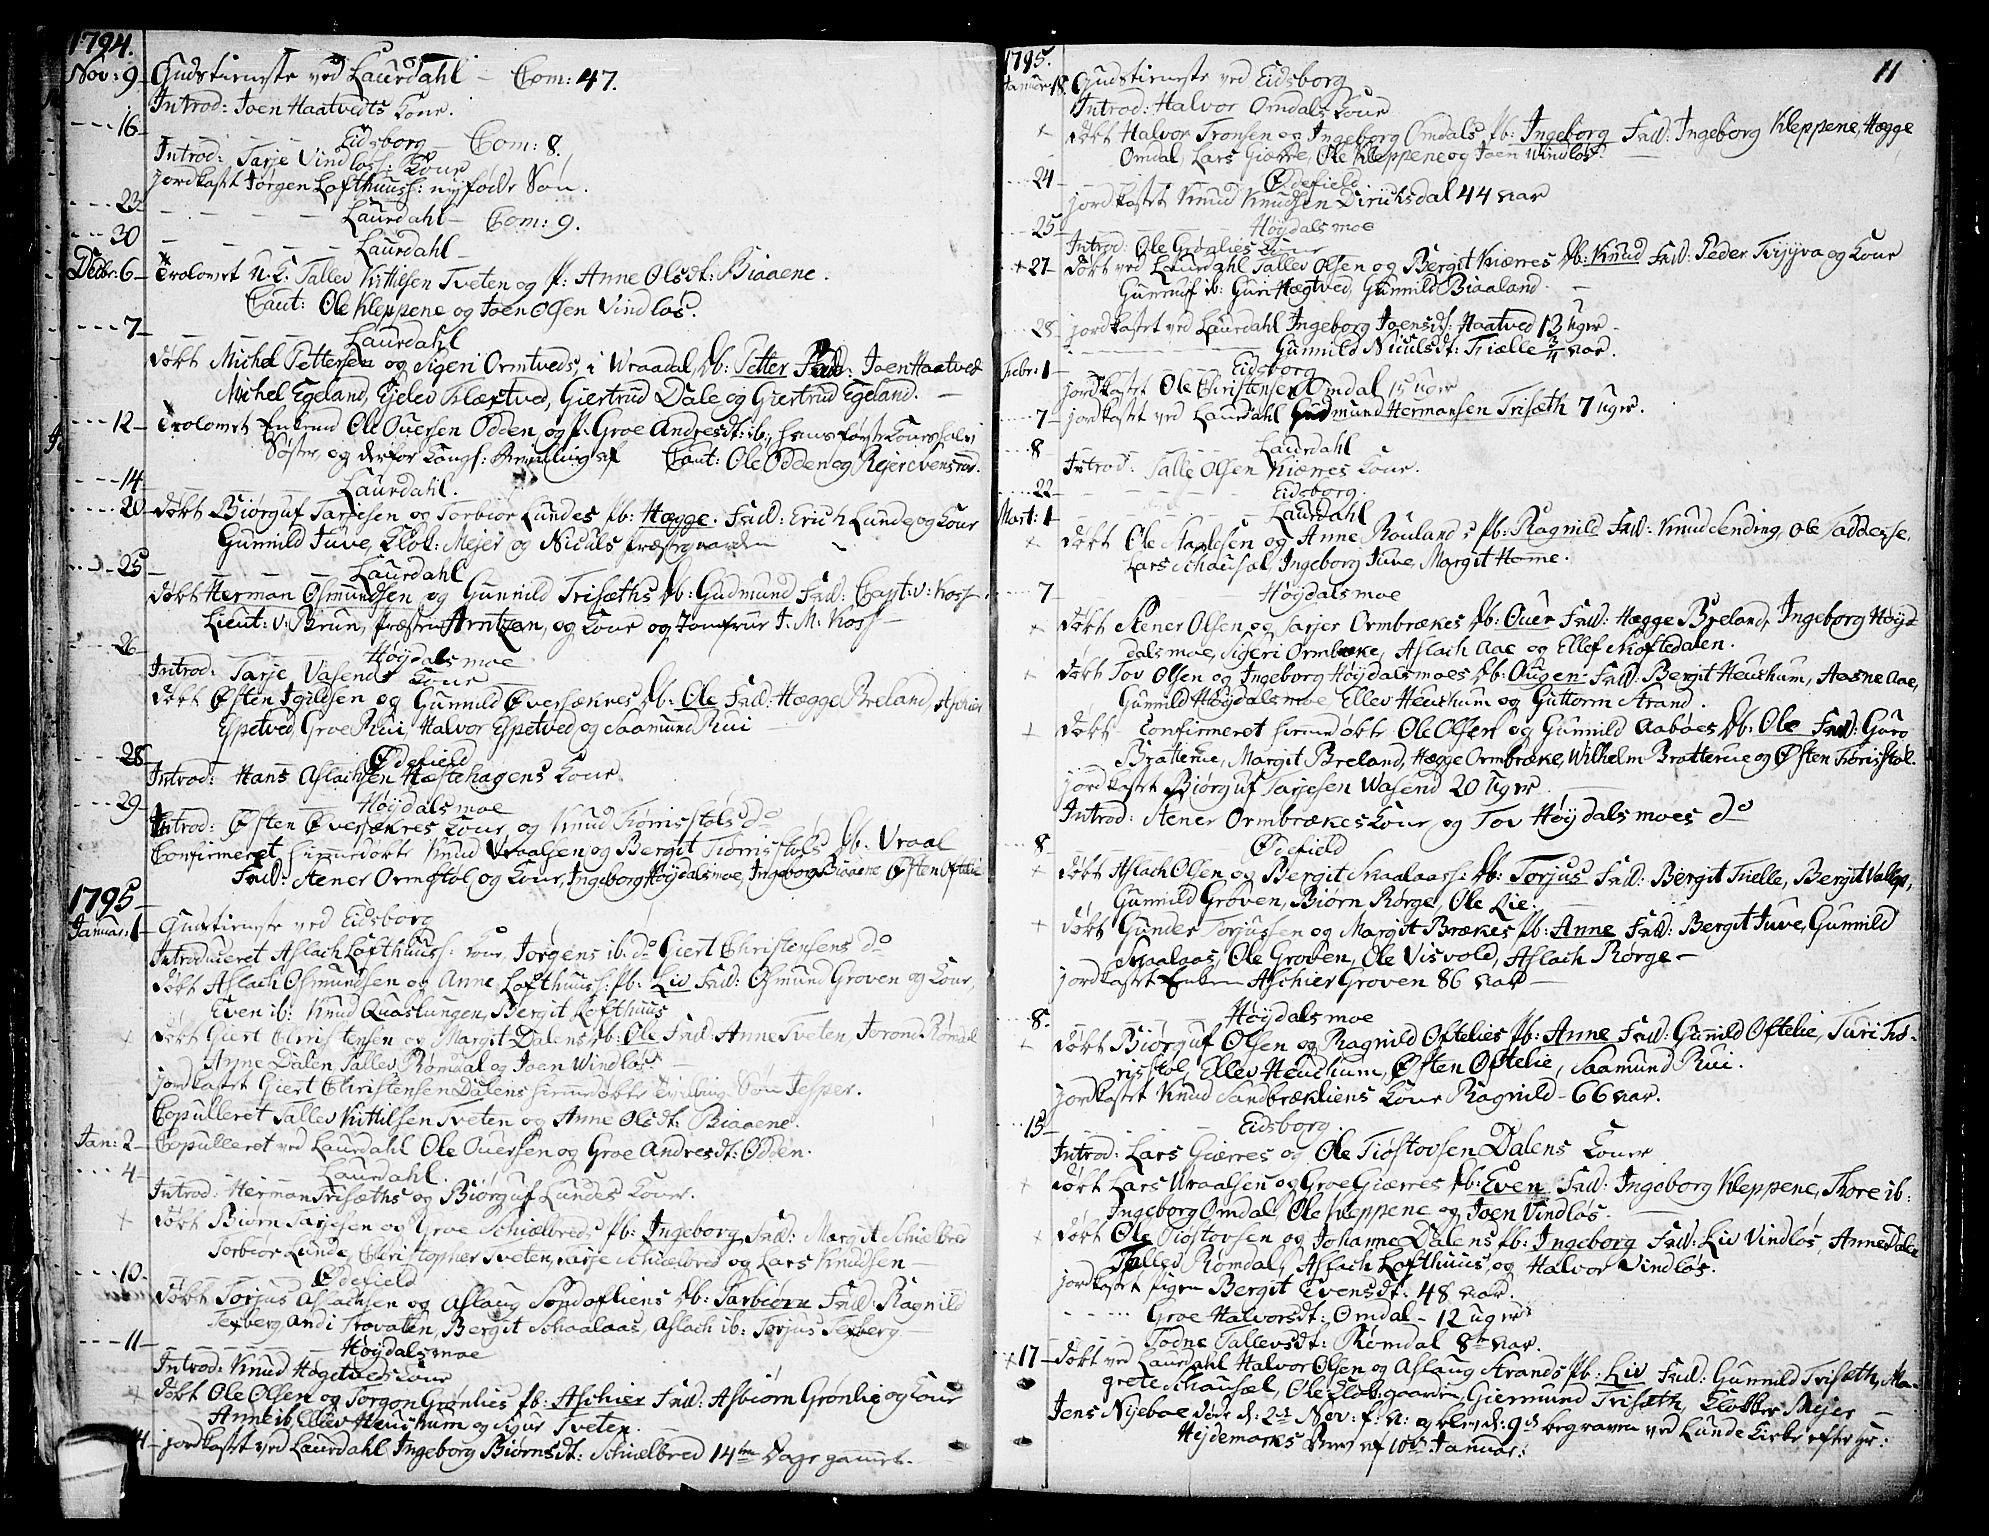 1794.
Nov: 9 Gudstieneste ved Laurdahl – Com: 47.
Introd: Joen Haatvedts Kone.
16 Eidsborg Com: 8.
Introd: Tarje Vindlos: Kone
jordkastet Jørgen Lofthuuss: nyfødde Søn.
23 Laurdahl – Com: 9.
30 Laurdahl –
Decbr: 6 Trolovet U. K. Tallev Kittilsen Tveten og P: Anne Olsdt: Biaaene.
Caut: Ole Kleppene og Joen Olsen Vindlos.
7 Laurdahl
døbt Michel Pettersen og Sigeri Ormtveds, i Wraadal, Db: Petter Fad: Joen Haatvedt
Michel Egeland, Ejelev Flæstved, Giertrud Dale og Giertrud Egeland. –
12 Trolovet Enkemd Ole Ouersen Odden og P: Groe Andresdt: ib:, hans første Kones halv
Søster, og derfor Kongs: Bevilling af Caut: Ole Odden og Rejer Evensrad.
14 Laurdahl.
20 døbt Biørguf Tarjesen og Torbiør Lundes Pb: Hægge. Fad: Erich Lunde og Kone
Gunnild Juve, Klok: Mejer og Niculs Præstgaarden
25 Laurdahl
døbt Herman Osmundsen og Gunnild Trisæths Db: Gudmund Fad: Capt: v: Koss
Lieut: v: Brun, Præsten Arntzen, og Kone og Jomfrue J. M. Koss –
26 Høydalsmoe
Introd: Tarje Vasends Kone
døbt Østen Egilsen og Gunnild Øversæknes Db: Ole Fad: Hægge Breland, Aschier
Espetved, Groe Rui, Halvor Espetved og Saamund Rui
28 Ødefield
Introd: Hans Aslachsen Hæstehagens Kone.
29 Høydalsmoe
Introd: Østen Øversækres Kone, og Knud Tiønnstøls do
Confirmeret hiemmedøbte Knud Vraalsen og Bergit Tiønnstøls Db: Vraal
Fad: Stener Ormstøl og Kone, Ingeborg Høydalsmoe, Ingeborg Biaaene Østen Oftelie
1795
Januar: 1 Gudstieneste ved Eidsborg
Introduceret Aslach Lofthuuss: Kone, Jørgens ib: do Giert Christensens do
døbt Aslach Osmundsen og Anne Lofthuuss: Pb: Liv Fad: Osmund Groven og Kone,
Even ib: Knud Quastungen, Bergit Lofthuus
døbt Giert Christensen og Margit Dalens Db: Ole Fad: Anne Tveten, Jorond Rømdal
Anne Dalen Tallev Rømdal og Joen Windlos
jordkastet Giert Christensen Dalens hiemmedøbte Tvilling Søn Jesper.
Copulleret Tallev Kittilsen Tveten og Anne Olsdt: Biaaene.
Jan: 2 Copulleret ved Laurdahl Ole Ouersen og Groe Andresdt: Odden.
4 Laurdahl.
Introd: Herman Trisæths og Biørguf Lundes Koner.
døbt Biørn Tarjesen og Groe Schielbreds Pb: Ingeborg, Fad: Margit Schielbred
Torbiør Lunde, Christopher Tveten, Tarje Schielbred og Lars Knudsen –
10 Ødefield
døbt Torjus Aslachsen og Aslaug Søndafliens Db: Tarbiørn Fad: Ragnild
Texberg Andi Trovaten, Bergit Schaalaas, Aslach ib: Torjus Texberg –
11 Høydalsmoe
Introd: Knud Høgetveds Kone
døbt Ole Olsen og Torgon Grønlies Pb: Aschier Fad: Asbiørn Grønlie og Kone
Anne ib, Ellev Heuskum og Sigur Tveten.
14 jordkastet ved Laurdahl Ingeborg Biørnsdt: Schielbred 14 Dage gammel.

1795. 11
Januar 18. Gudstieneste ved Eidsborg
Introd: Halvor Omdals Kone
døbt Halvor Tronsen og Ingeborg Omdals Pb: Ingeborg Fad: Ingeborg Kleppene, Hægge
Omdal, Lars Giærre, Ole Kleppene og Joen Windlos.
24 Ødefield
jordkastet Knud Knudsen Diriksdal 44 Aar
25 Høydalsmoe
Introd: Ole Grønlies Kone
27 døbt ved Laurdahl Tallev Olsen og Bergit Kiærres Db: Knud Fad: Peder Trijva og Kone
Gunnuf ib: Guri Hægtved, Gunnild Biaaland.
28 jordkastet ved Laurdahl Ingeborg Joensdt: Haatved 13 Uger
Gunnild Niculsdt: Trælle 3/4 Aar.
Febr: 1 Eidsborg
jordkastet Ole Christensen Omdal 15 uger
7 jordkastet ved Laurdahl Gudmund Hermansen Trisæth 7 Uger.
8 Laurdahl
Introd: Talle Olsen Kiærres Kone.
22 Eidsborg.
Mart: 1 Laurdahl
døbt Ole Staalesen og Anne Roulands Pb: Ragnild Fad: Knud Sending, Ole Taddense,
Lars Schausal, Ingeborg Juve, Margit Homme.
7 Høydalsmoe
døbt Stener Olsen og Tarjer Ormbrækes Db: Ouer Fad: Hægge Breland, Ingeborg Høyd
dalsmoe, Sigeri Ormbræke, Aslach Aae og Ellef Kostedalen.
døbt Tov Olsen og Ingeborg Høydalsmoes Db: Ougen Fad: Bergit Heuskum, Aasne Aae,
Gunnild Høydalsmoe, Ellev Heuskum og Guttorm Strand.
døbt Confirmeret hiemdøbte Ole Olsen og Gunnild Aabøes Db: Ole Fad: Guro
Bratterue, Margit Breland, Hægge Ormbræke, Wilhelm Bratterue og Østen Tiønnstøl.
jordkastet Biørguf Tarjesen Wasend 20 Uger
Introd: Stener Ormbrækes Kone og Tov Høydalsmoes do
8 Ødefield
døbt Aslach Olsen og Bergit Skaalaass: Db: Torjus Fad: Bergit Tielle, Bergit Vallegt,
Gunnild Groven, Biørn Rørge, Ole Lie.
døbt Gunder Torjussen og Margit Brækes Pb: Anne Fad: Bergit Juve, Gunnild
Skaalaas, Ole Groven, Ole Visvold, Aslach Rørge –
jordkastet Enken Aschier Groven 86 Aar –
8. Høydalsmoe
døbt Biørguf Olsen og Ragnild Oftelies Pb: Anne Fad: Gunnild Oftelie, Turi Tiø-
nstøl, Ellev Heuskum, Østen Oftelie, Saamund Rui.
jordkastet Knud Sandbrækliens Kone Ragnild – 66 Aar.
15 Eidsborg.
Introd: Lars Giærres og Ole Tiøstovsen Dalens Koner
døbt Lars Wraalsen og Groe Giærres Db: Even Fad: Ingeborg Kleppene, Thore ib:
Ingeborg Omdal, Ole Kleppene og Joen Vindlos.
døbt Ole Tiøstovsen og Johanne Dalens Pb: Ingeborg Fad: Liv Vindlos, Anne Dalen
Tallev Rømdal, Aslach Lofthuus, og Halvor Vindlos.
jordkastet Pigen Bergit Evensdt: 48 Aar.
Groe Halvorsdt: Omdal – 12 uger
Todne Tallevsdt: Rømdal 8 Aar.
17 døbt ved Laurdahl Halvor Olsen og Aslaug Strands Pb: Liv Fad: Gunnild Trisæth, Ma-
grete Schausæl, Ole Klokgaarden, Giermund Trisæth, Klokker Mejer
Jens Nyeboe døde d: 2d Nov: f: A: og blev d: 9d begraven ved Lunde Kirke efter Hr:
Hejdemarks Brev af 10d Januar: